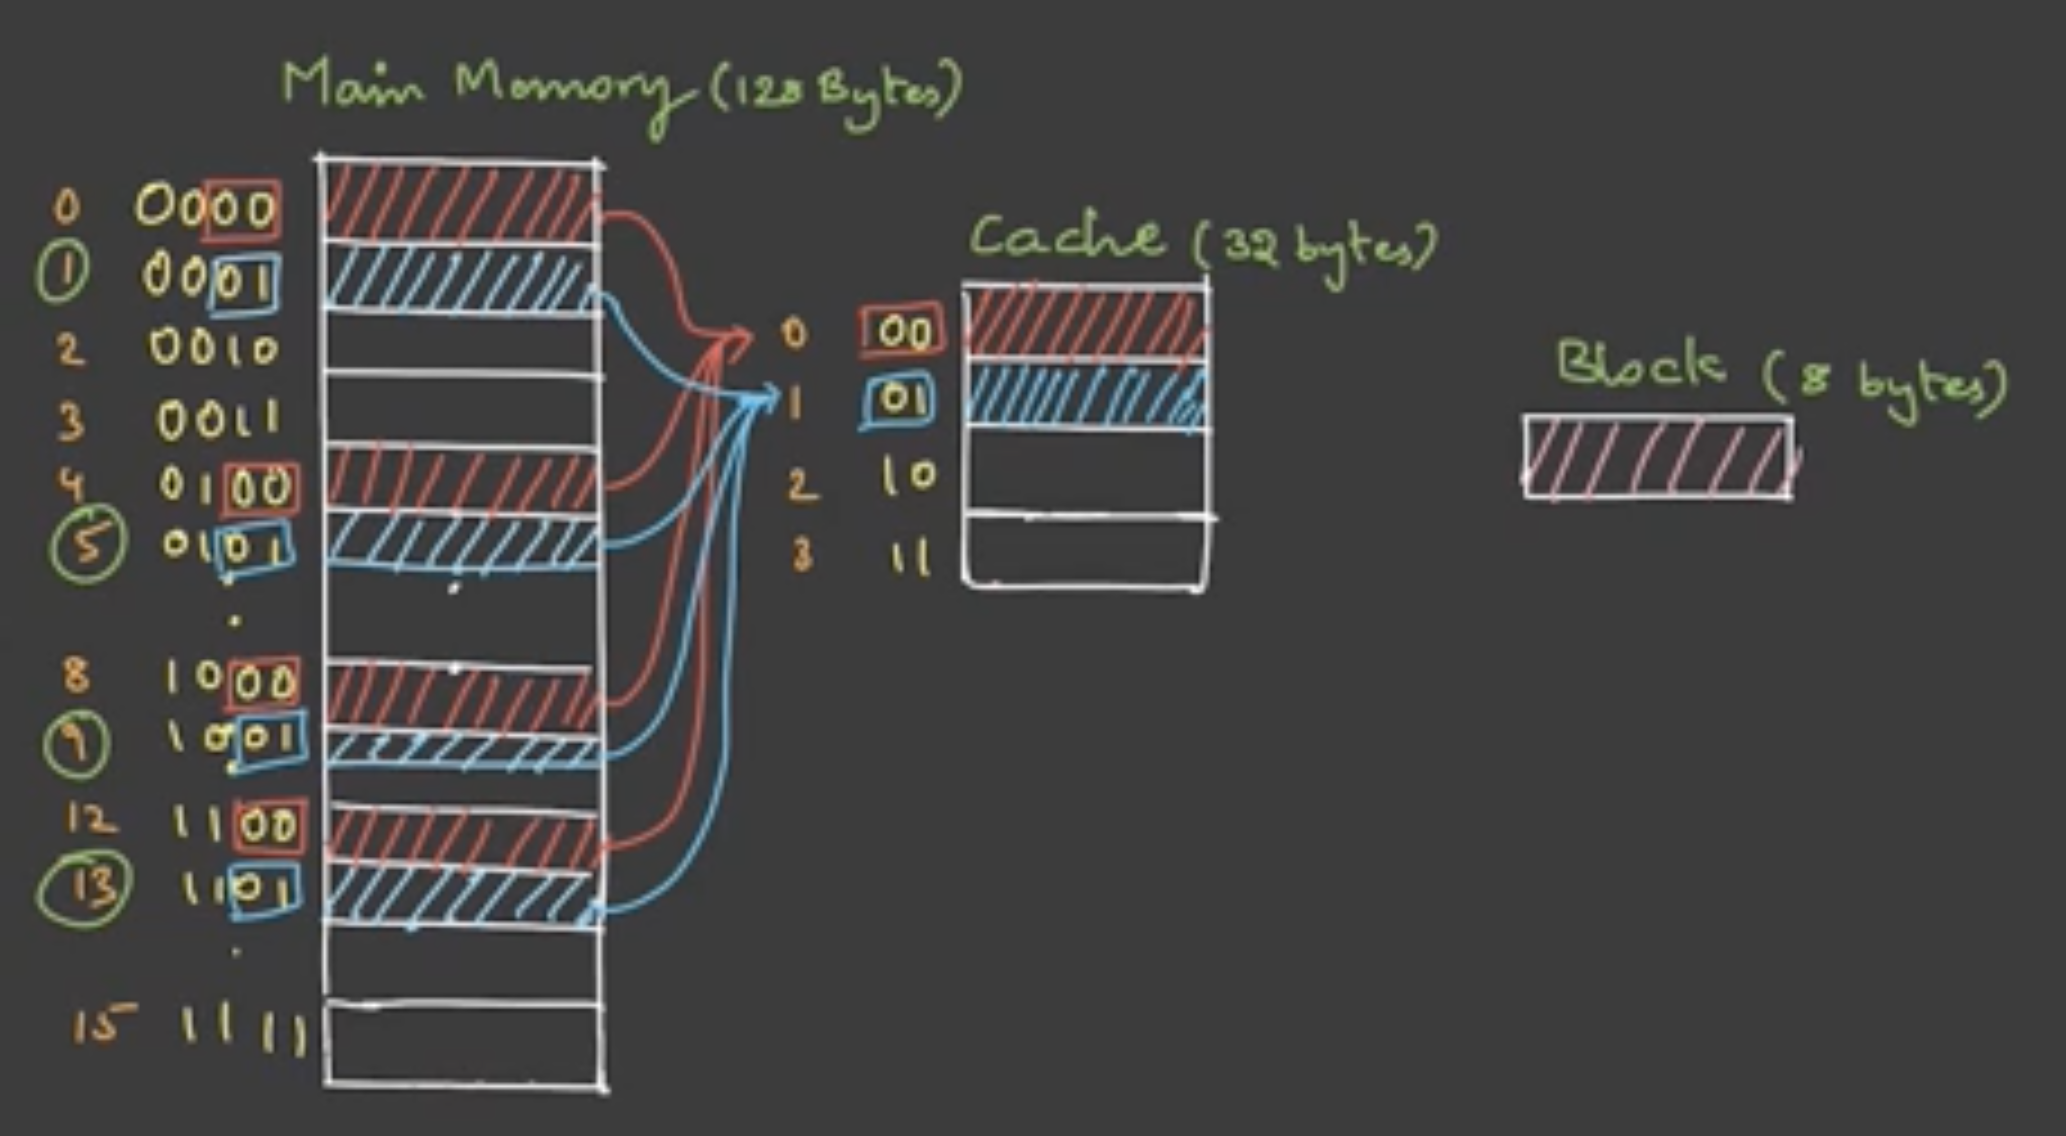 Main Memory (128 Bytes)
0 0000
1 0001
2 0010
3 0011
4 0100
5 0101
8 1000
9 1001
12 1100
13 1101
15 1111
Cache (32 bytes)
0 00
1 01
2 10
3 11
Block (8 bytes)